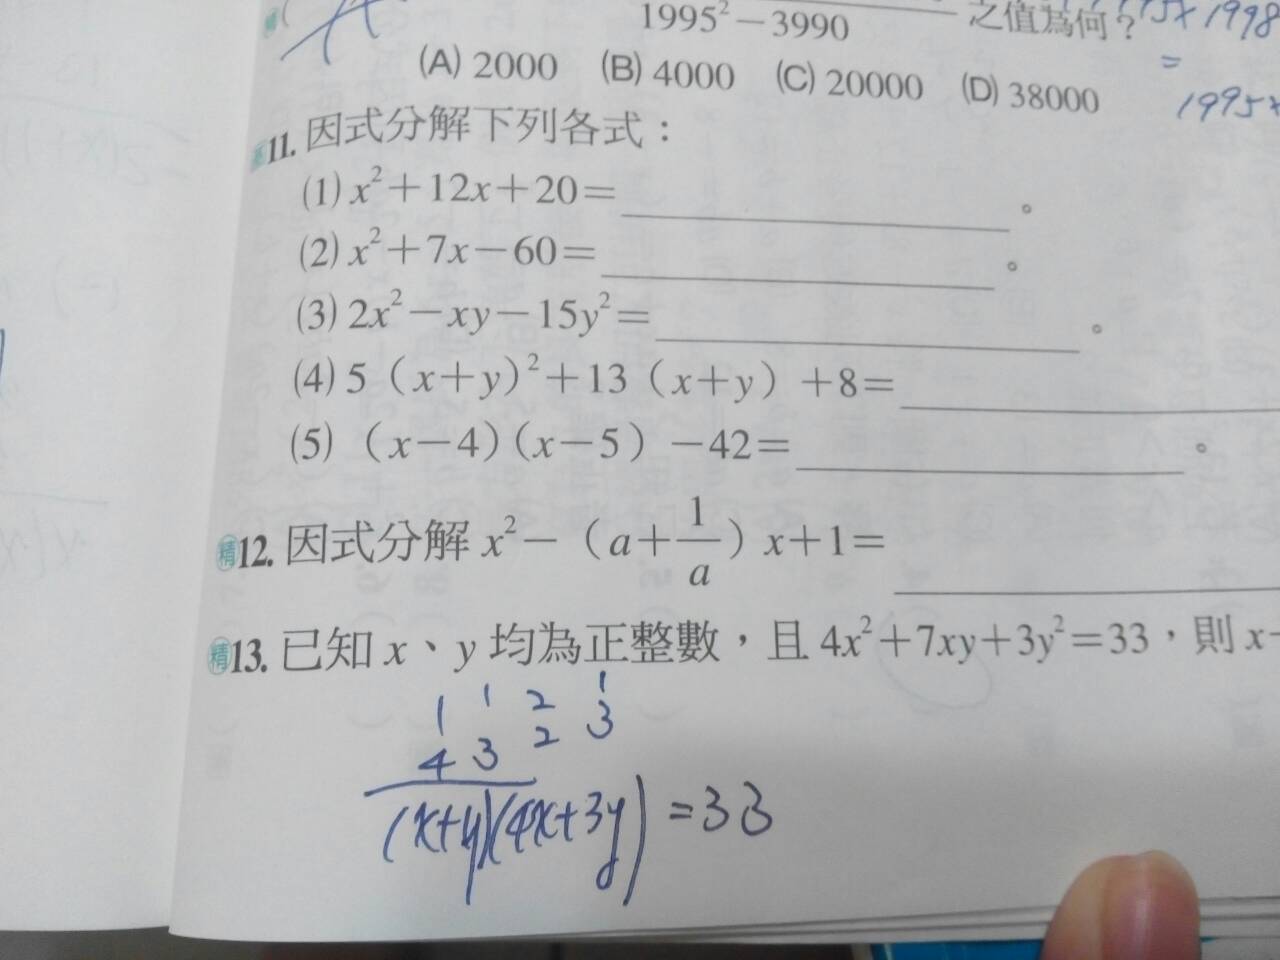 1995²－3990 之值為何？ 1998
=
(A) 2000 (B) 4000 (C) 20000 (D) 38000
1995×
11. 因式分解下列各式：
(1) x²＋12x＋20＝ 。
(2) x²＋7x－60＝ 。
(3) 2x²－xy－15y²＝ 。
(4) 5（x＋y）²＋13（x＋y）＋8＝
(5) （x－4）（x－5）－42＝ 。
精12. 因式分解 x²－（a＋1/a）x＋1＝
精13. 已知 x、y 均為正整數，且 4x²＋7xy＋3y²＝33，則 x
1 1 2 1
4 3 2 3
(x+y)(4x+3y) =33